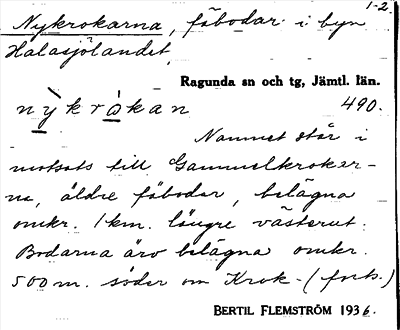 1-2.
Nykrokarna, fäbodar i byn
Halasjölandet,
Ragunda sn och tg, Jämtl. län.
nỳkròkan 490.
Namnet står i
motsats till Gammelkroker-
na, äldre fäbodar, belägna
omkr. 1 km. längre västerut.
Bodarna äro belägna omkr.
500 m. söder om Krok- (forts.)
BERTIL FLEMSTRÖM 1936.